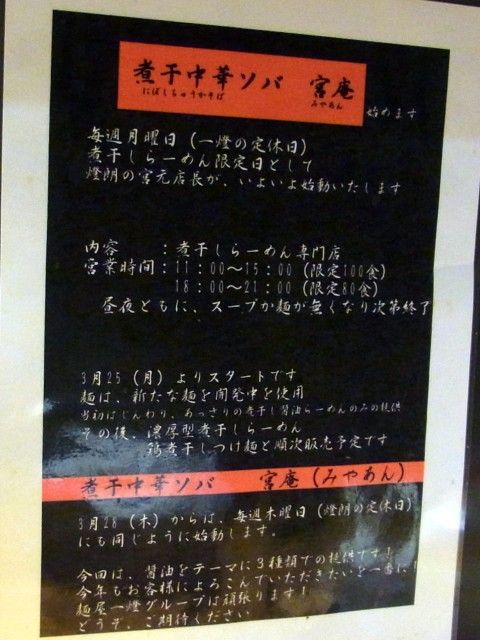 煮干中華ソバ 宮庵
にぼしちゅうかそば みやあん
始めます
毎週月曜日(一燈の定休日)
煮干しらーめん限定日として
燈朗の宮元店長が、いよいよ始動いたします
内容 :煮干しらーめん専門店
営業時間:11:00~15:00(限定100食)
18:00~21:00(限定80食)
昼夜ともに、スープか麺が無くなり次第終了
3月25(月)よりスタートです
麺は、新たな麺を開発中を使用
当初はじんわり、あっさりの煮干し醤油らーめんのみの提供
その後、濃厚型煮干しらーめん
鶏煮干しつけ麺と順次販売予定です
煮干中華ソバ 宮庵(みやあん)
3月28(木)からは、毎週木曜日(燈朗の定休日)
にも同じように始動します。
今回は、醤油をテーマに3種類での提供です!
今年もお客様によろこんでいただきたいを一番に!
麺屋一燈グループは頑張ります!
どうぞ、ご期待ください